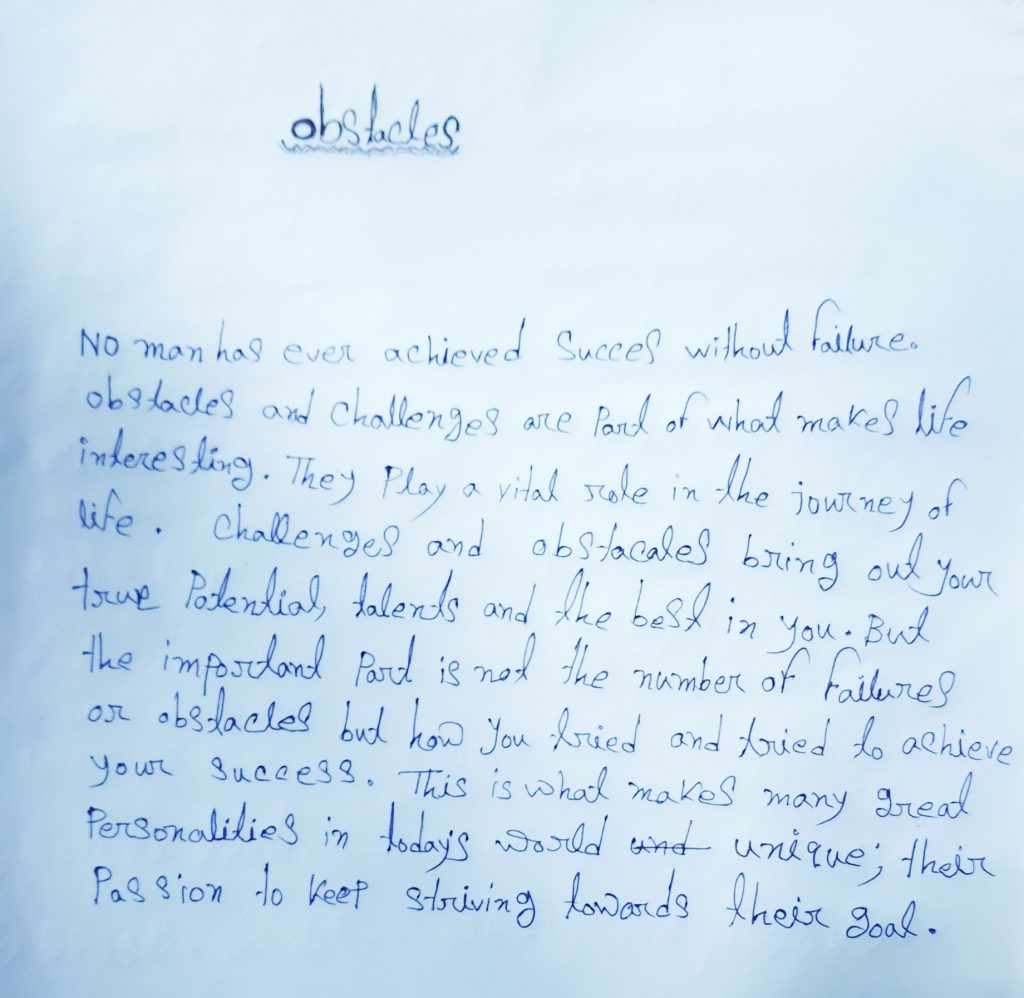 obstacles
No man has ever achieved Succes without failure.
obstacles and challenges are Part of what makes life
interesting. They Play a vital role in the journey of
life. Challenges and obstacales bring out your
true Potential, talents and the best in you. But
the important Part is not the number of failures
or obstacles but how you tried and tried to achieve
your success. This is what makes many great
Personalities in today's world und unique; their
Passion to keep striving towards their goal.